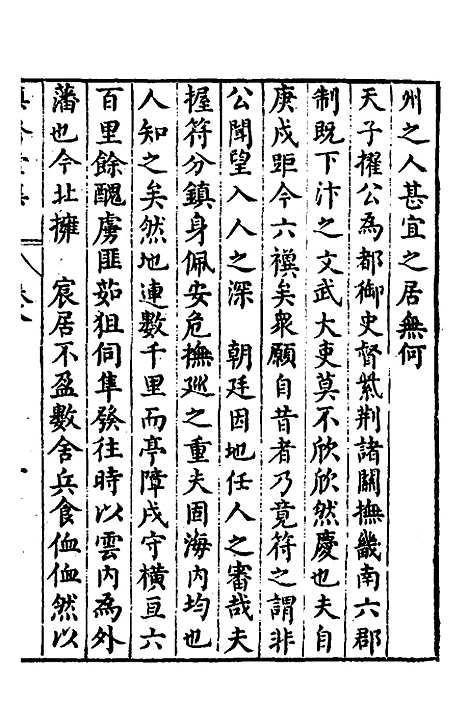 州之人甚宜之居無何
天子擢公為都御史督紫荆諸關撫畿南六郡
制既下汴之文武大吏莫不欣欣然慶也夫自
庚戌距今六禩矣衆願自昔者乃竟符之謂非
公聞望入人之深　朝廷因地任人之審哉夫
握符分鎮身佩安危撫廵之重夫固海内均也
人知之矣然地連數千里而亭障戍守橫亘六
百里餘醜虜匪茹狙伺隼發往時以雲内為外
藩也今北擁　宸居不盈數舍兵食仙仙然以